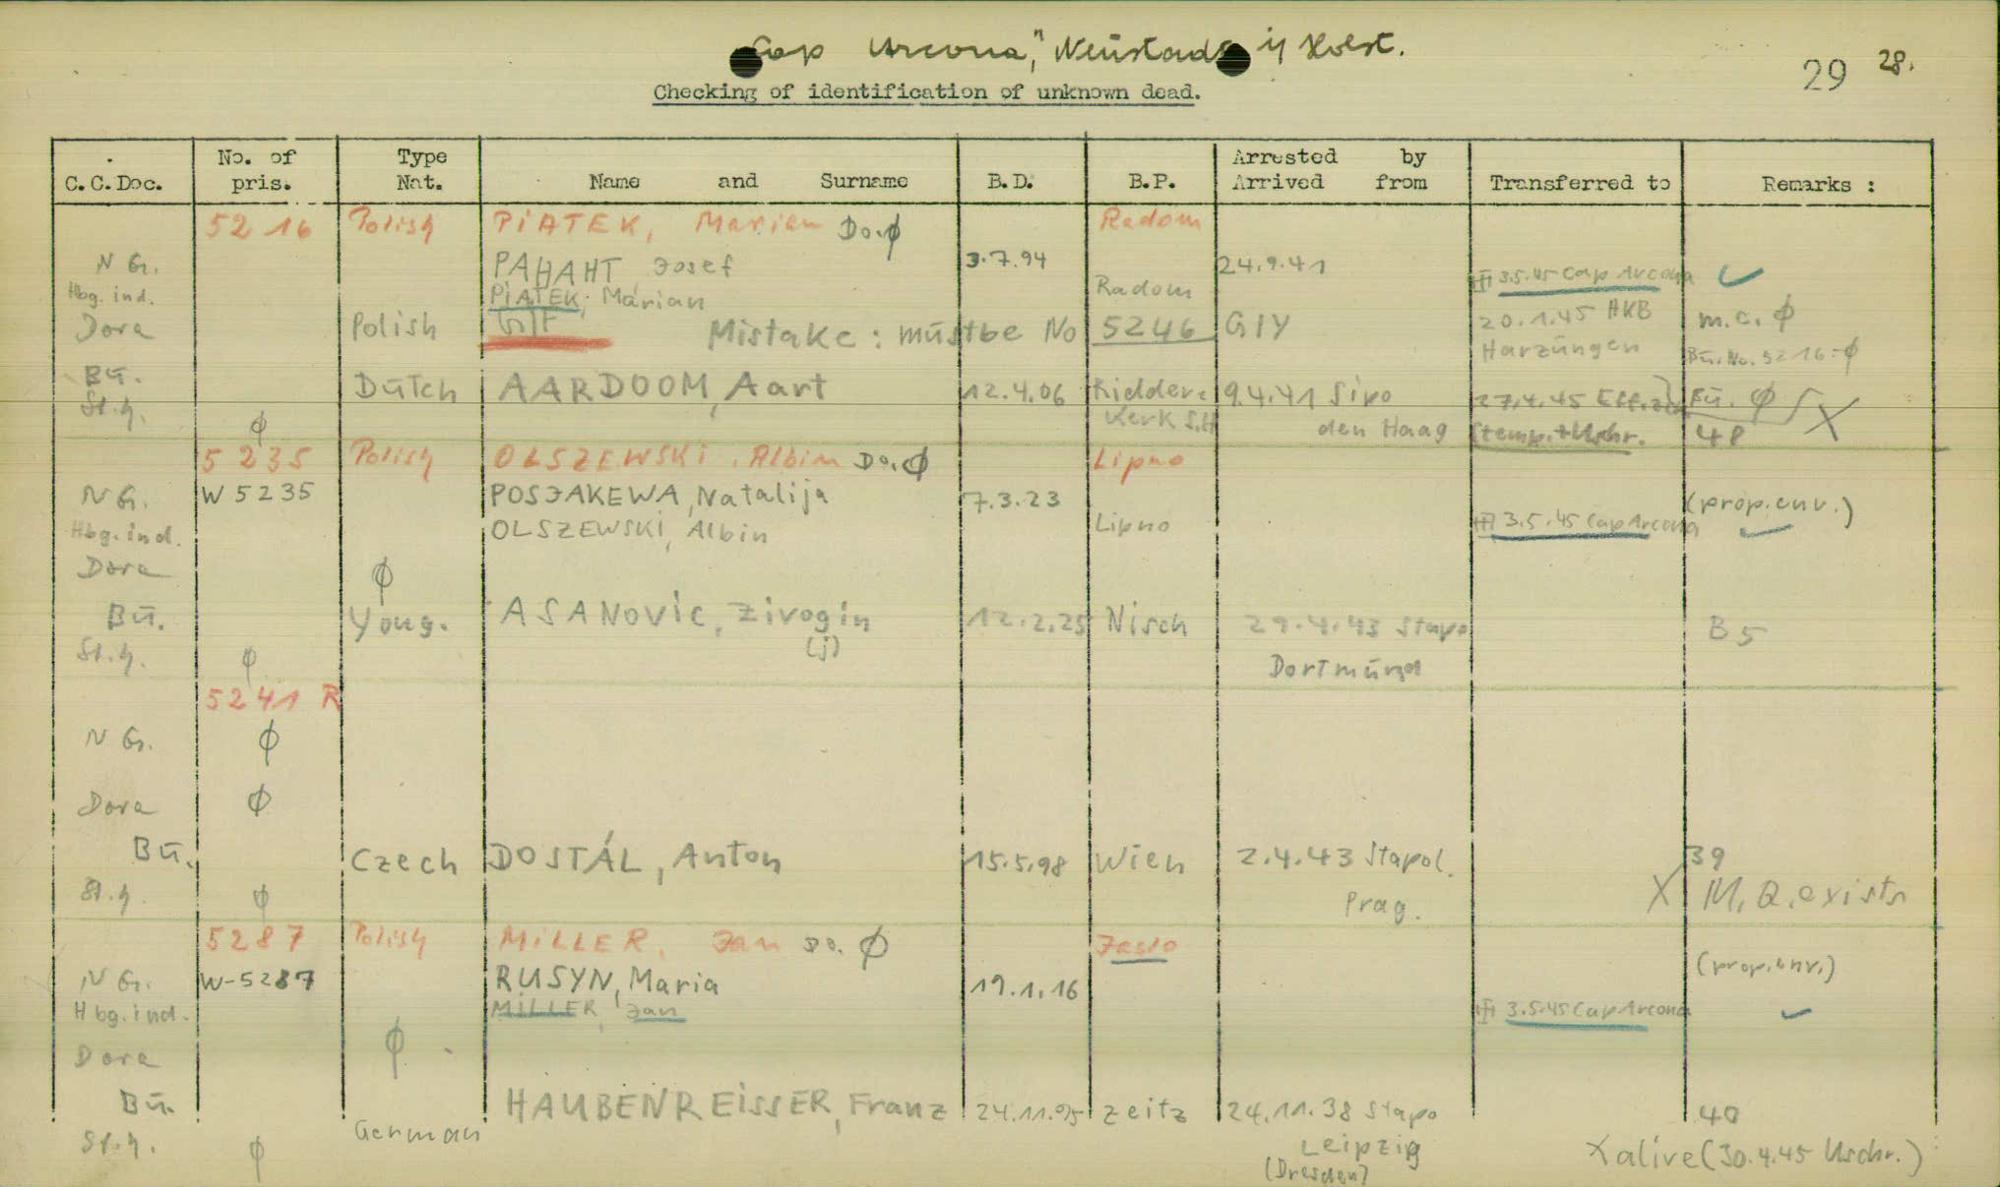 "Cap Arcona," Neustadt i/ Holst.
29 28.
Checking of identification of unknown dead.
C.C.Doc. No. of pris. Type Nat. Name and Surname B.D. B.P. Arrested by Arrived from Transferred to Remarks :
5216 Polish PiATEK, Marian Do.ϕ Radom
N G. PAHAHT, Josef 3.7.94 24.9.41
Hbg. ind. PiATEK, Marian Radom 3.5.45 Cap Arcona ✓
Dora Polish Mistake: must be No 5246 20.1.45 HKB Harzungen m.c. ϕ
Bu. No. 5216=ϕ
Bu. Dutch AARDOOM, Aart 12.4.06 Ridderkerk 9.4.41 Sipo den Haag 27.4.45 Bu. ϕ X
St.h. ϕ 48
5235 Polish OLSZEWSKi, Albin Do.ϕ Lipno
N G. W 5235 POSJAKEWA, Natalija 7.3.23 (prop.env.)
Hbg. ind. OLSZEWSKi, Albin Lipno 3.5.45 Cap Arcona ✓
Dora ϕ
Bu. Youg. ASANOViC, Zivogin (j) 12.2.25 Nisch 29.4.43 Stapo Dortmund B 5
St.h. ϕ
5241 R
N G. ϕ
Dora ϕ
Bu. Czech DOSTÁL, Anton 15.5.98 Wien 2.4.43 Stapol. Prag. 39
St.h. ϕ X M.Q. exists
5287 Polish MiLLER, Jan Do. ϕ Jaslo
N G. W-5287 RUSYN, Maria 19.1.16 (prop.env.)
Hbg. ind. MiLLER, Jan 3.5.45 Cap Arcona ✓
Dora ϕ
Bu. German HAUBENREiSSER, Franz 24.11.95 Zeitz 24.11.38 Stapo Leipzig (Dresden) 40
St.h. ϕ X alive (30.4.45 Uschr.)